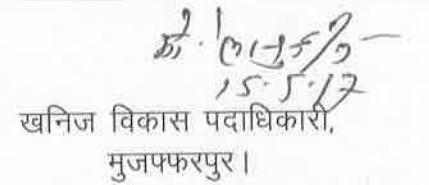 15.5.17
खनिज विकास पदाधिकारी,
मुजफ्फरपुर।